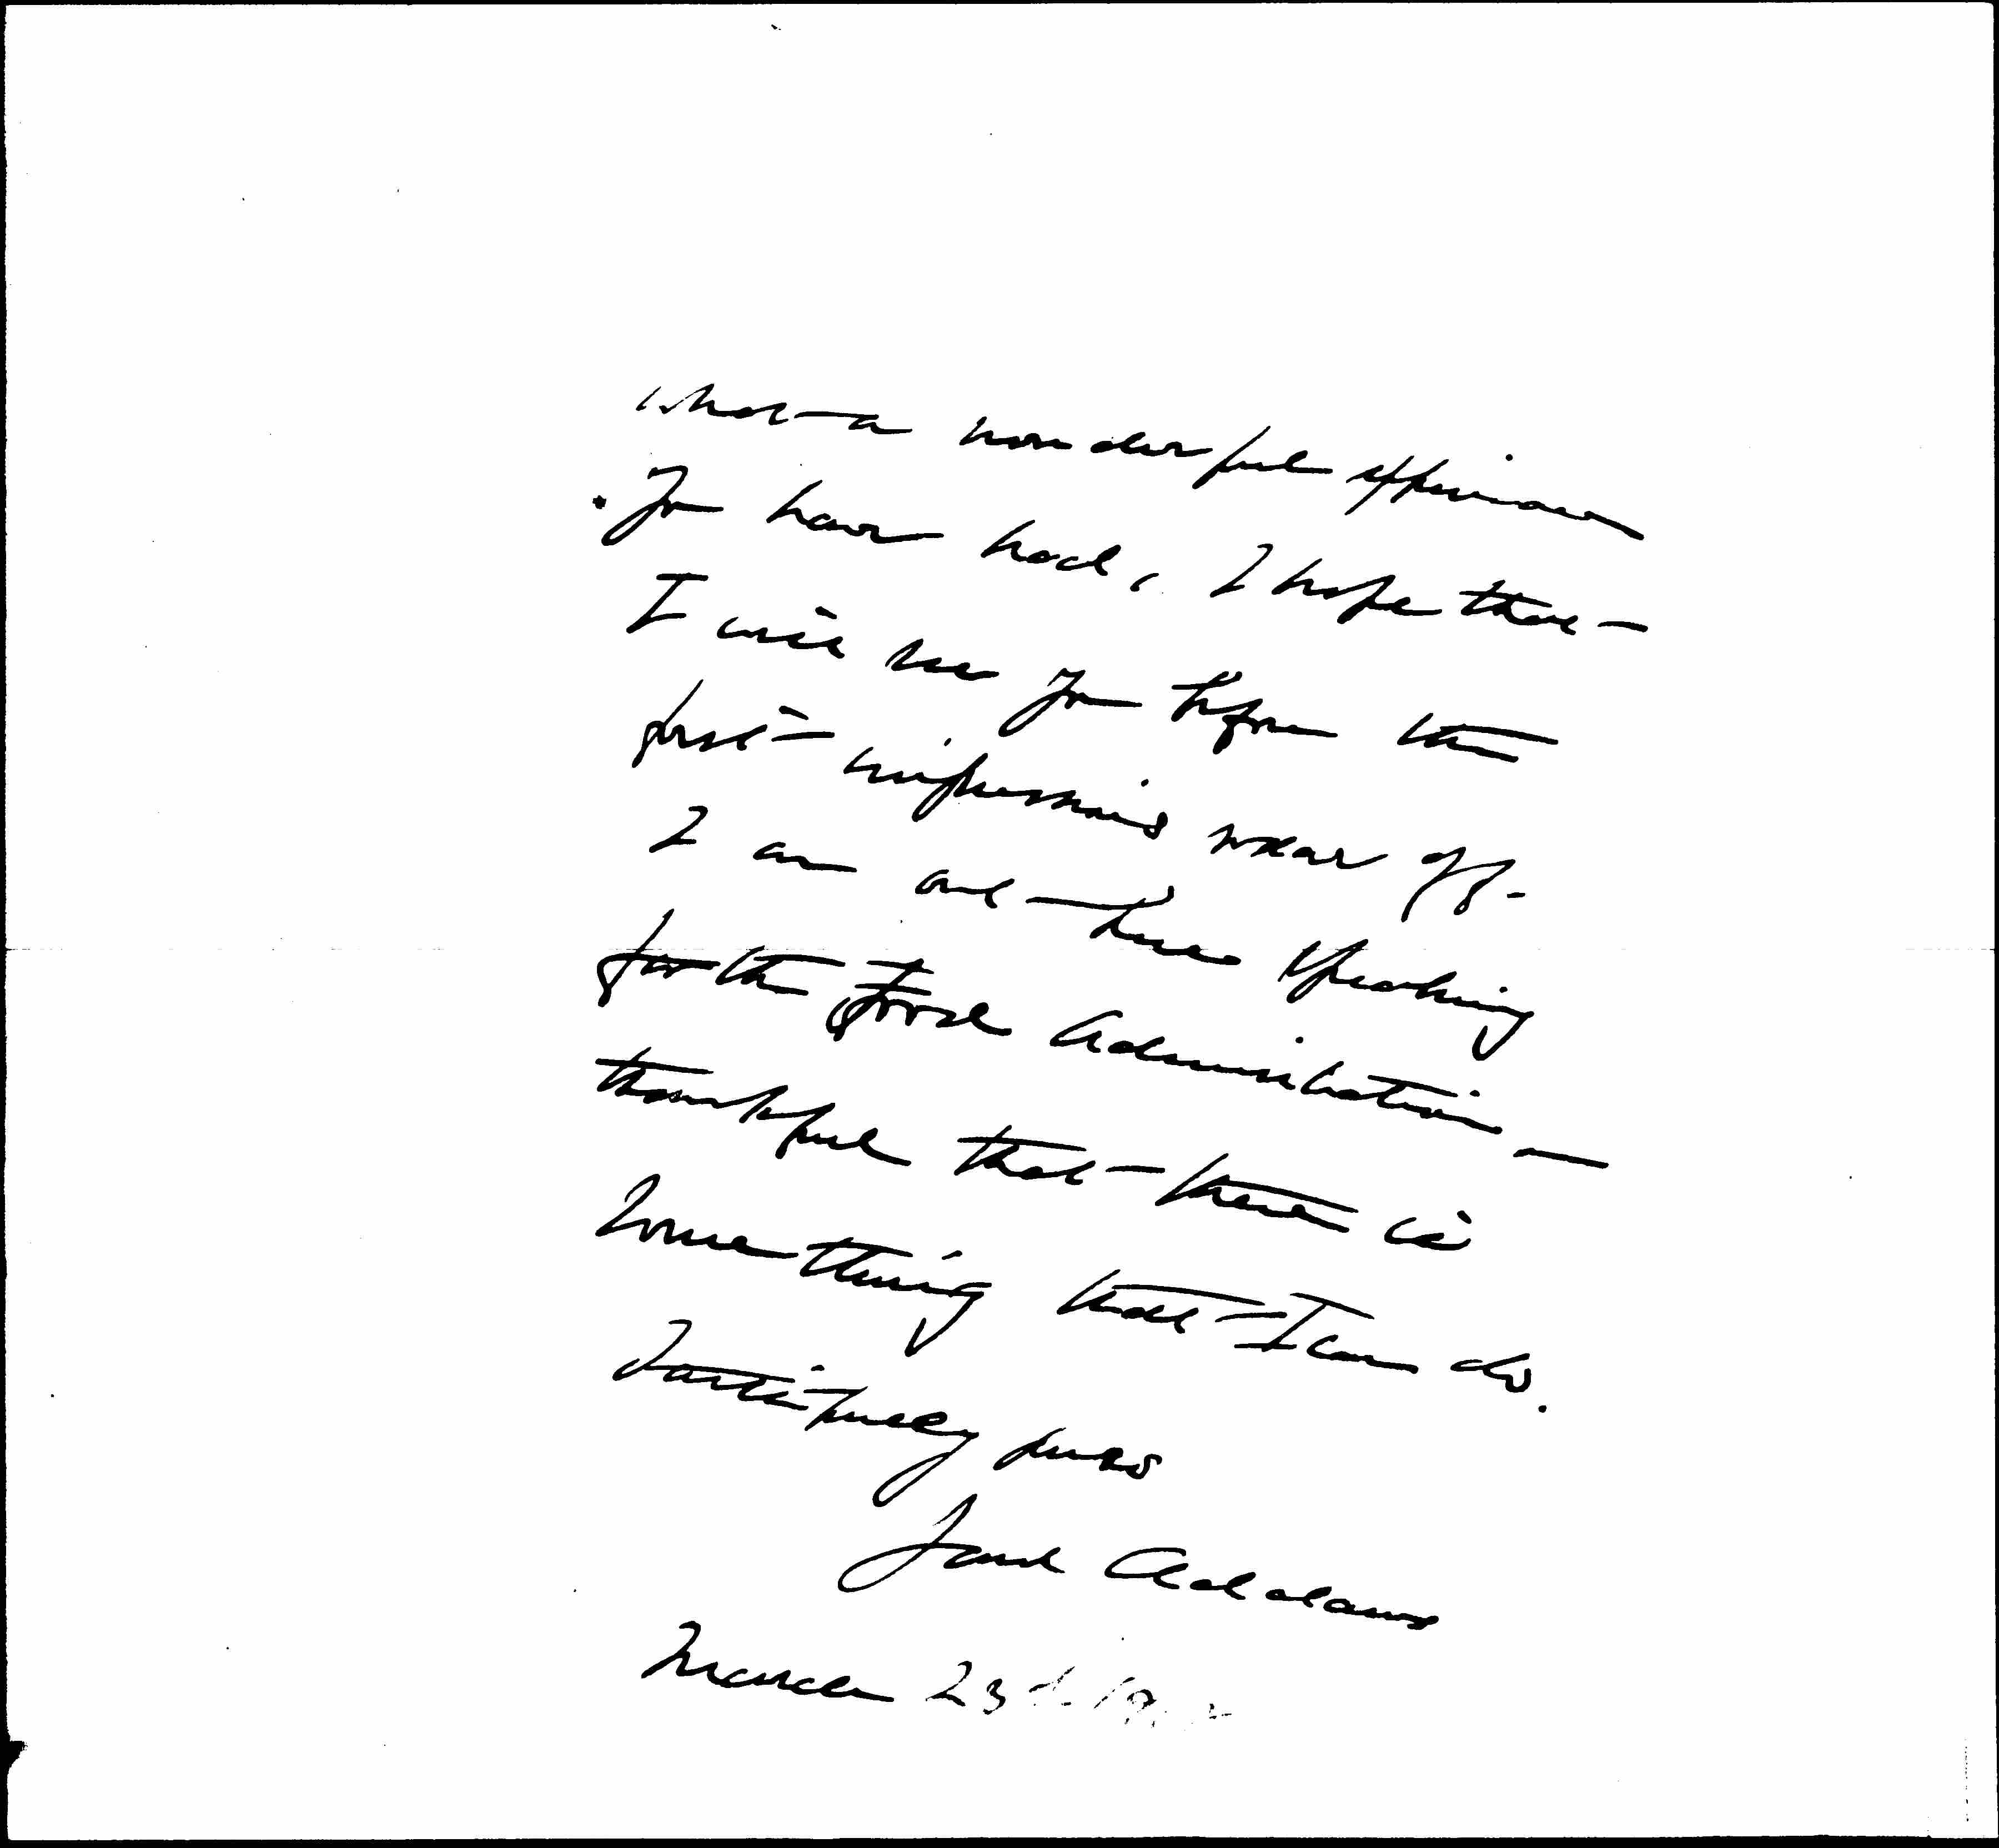 What a wonderful experience
you have had, I hope that
I will see you before the
first impressions wear off.
I am out here speaking
for the Food Administration —
thankful that there is
something that I can do.
Faithfully yours
Jane Addams
March 23d